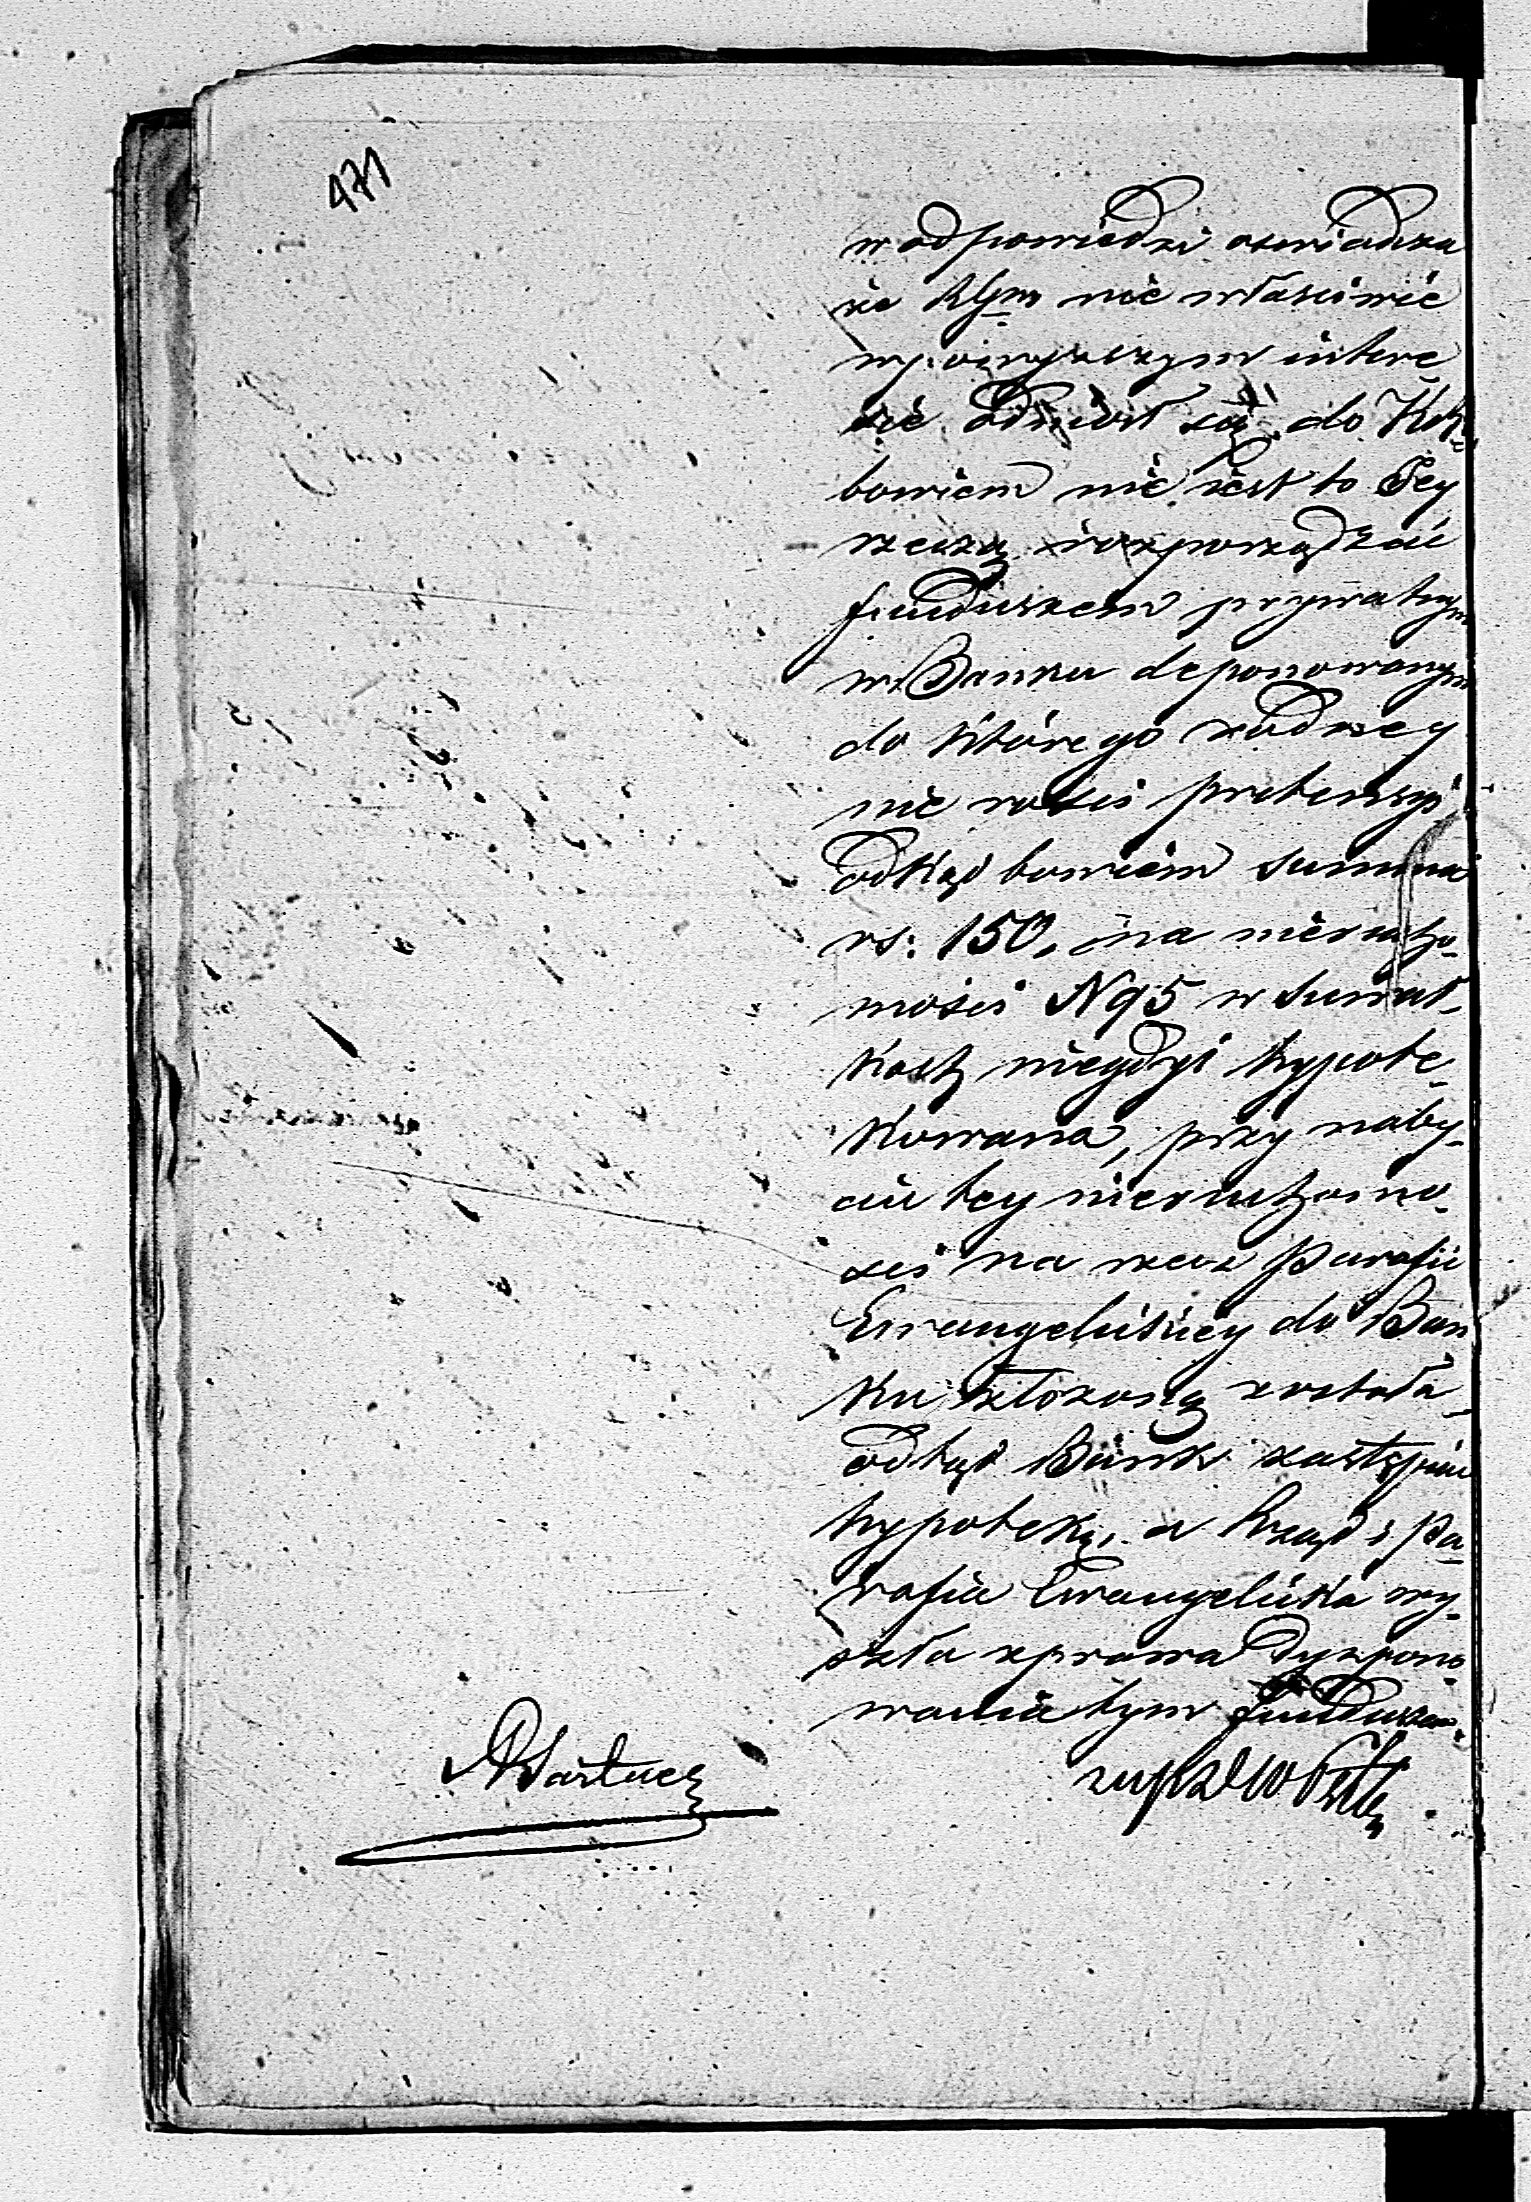 471
w odpowiedzi oswiadcza
że RGm nie własciwie
w powyższym intere
sie odniosł się do
bowiem nie iest to Jey
rzeczą rozporządzać
funduszem prywatnym
w Banku deponowanym
do którego żadney
nie rości pretensyi
odkąd bowiem summa
rs: 150, na nierucho-
mości N 95 w Suwał-
kach niegdyś hypote-
kowana, przy naby-
ciu tey nieruchomo-
ści na rzecz Parafii
Ewangelickiey do Ban
ku złożoną została,
odtąd Bank zastąpił
hypotekę, a Rząd i Pa-
rafia Ewangelicka wy-
szła z prawa dyspono
wania tym funduszem.